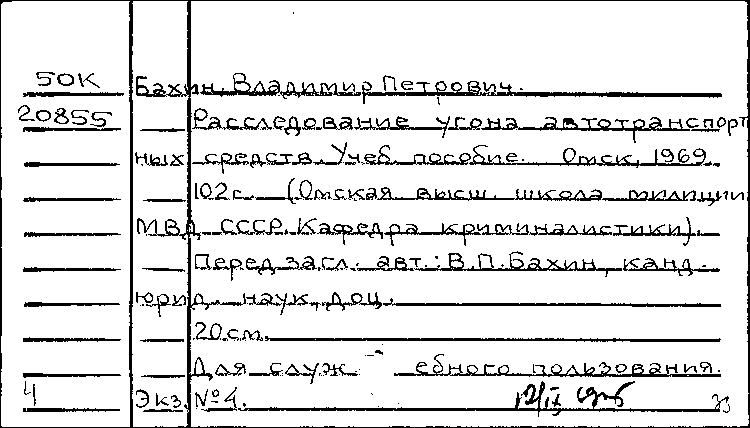 50К Бахин, Владимир Петрович.
20855 Расследование угона автотранспорт
ных средств. Учеб. пособие. Омск, 1969.
102 с. (Омская высш. школа милиции
МВД СССР. Кафедра криминалистики).
Перед загл. авт.: В.П. Бахин, канд.
юрид. наук, доц.
20 см.
Для служ ебного пользования.
4 Экз. №4. 12/IX